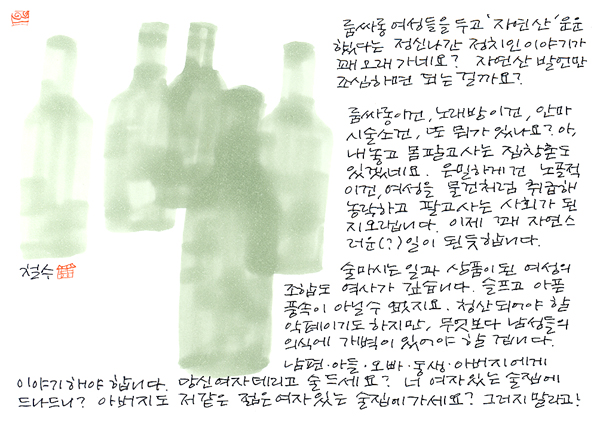 룸싸롱 여성들을 두고 '자연산' 운운
했다는 정신나간 정치인 이야기가
꽤 오래 가네요? 자연산 발언만
조심하면 되는 걸까요?
룸싸롱이건, 노래방이건, 안마
시술소건, 또 뭐가 있나요? 아,
내놓고 몸 팔고 사는 집창촌도
있겠네요. 은밀하게건 노골적
이건, 여성을 물건처럼 취급해
농락하고 팔고 사는 사회가 된
지 오랩니다. 이제 꽤 자연스
러운(?) 일이 된 듯합니다.
술마시는 일과 상품이 된 여성의
조합도 역사가 깊습니다. 슬프고 아픈
풍속이 아닐 수 없지요. 청산되어야 할
악폐이기도 하지만, 무엇보다 남성들의
의식에 개벽이 있어야 할 겁니다.
남편·아들·오빠·동생·아버지에게
이야기해야 합니다. 당신 여자 데리고 술 드세요? 너 여자 있는 술집에
드나드니? 아버지도 저같은 젊은 여자 있는 술집에 가세요? 그러지 말라고!
철수